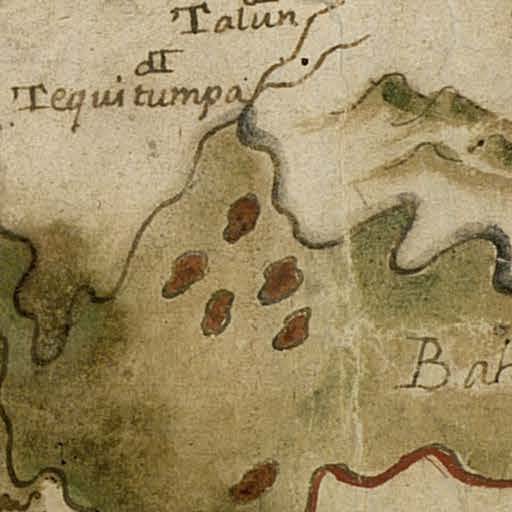 Talun
Tequitumpa
Bah